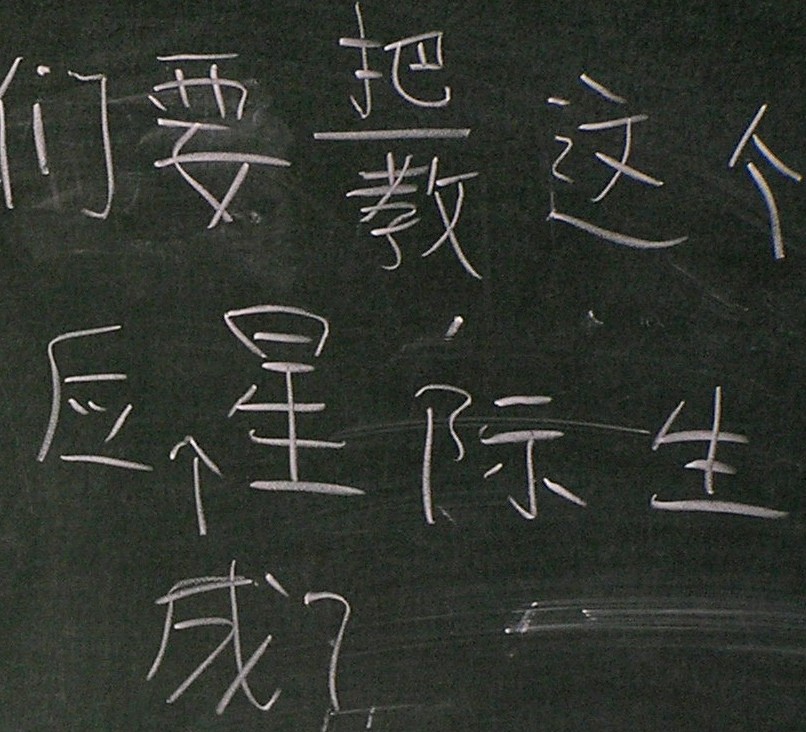 们要把这个
教
应个星际生
成了